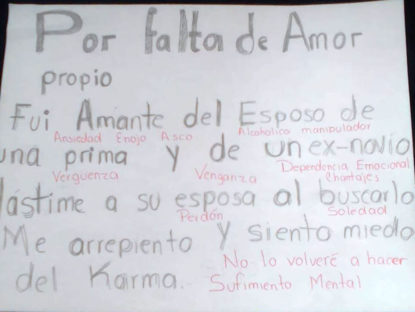 Por falta de Amor
propio
Fui Amante del Esposo de
Ansiedad Enojo Asco Alcoholico manipulador
una prima y de un ex-novio
Verguenza Venganza Dependencia Emocional
Chantajes
lástime a su esposa al buscarlo
Perdón Soledad
Me arrepiento y siento miedo
del Karma. No lo volveré a hacer
Sufimiento Mental